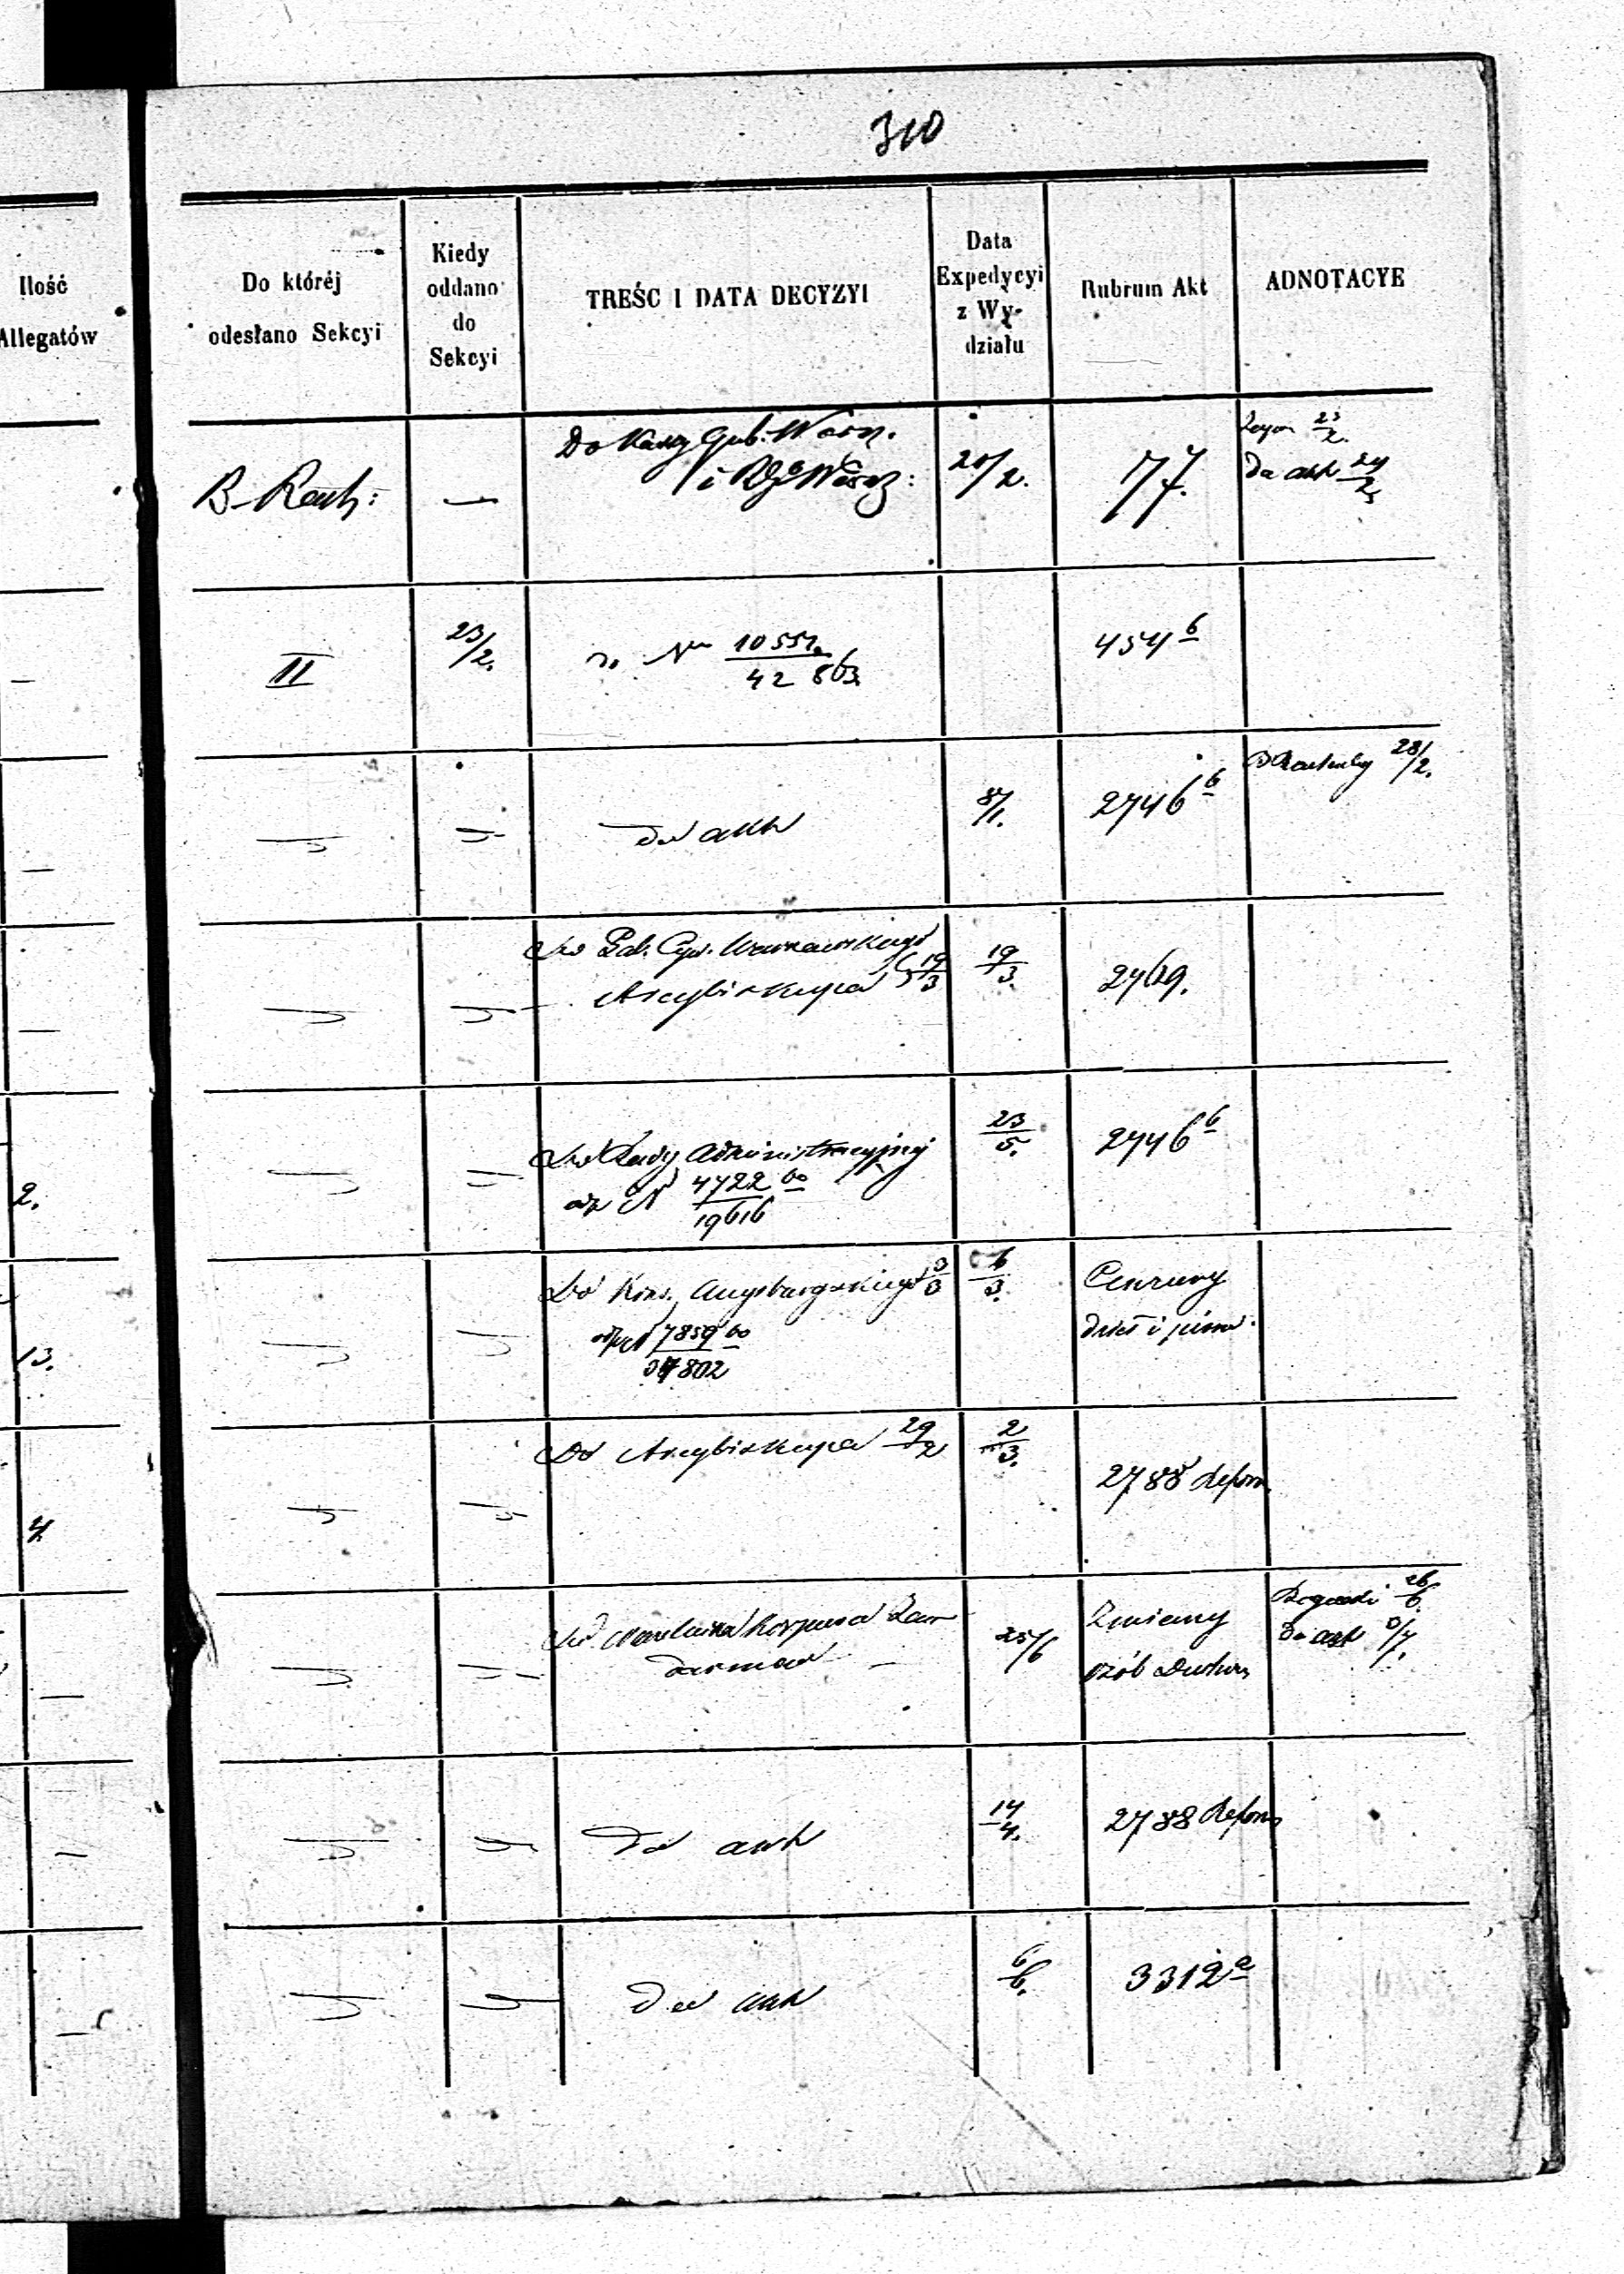 310
Ilość
Allegatów
Do któréj
odesłano Sekcyi
Kiedy
oddano
do
Sekcyi
TREŚC I DATA DECYZYI
Data
Expedycyi
z Wy-
działu
Rubrum Akt
ADNOTACYE
B. Rach:
—
Do Kassy Gub. Warsz.
i
20/2.
77.
23/2.
Do akt 24/2
II
23/2.
do Nru 10551/42 863
454 b
do akt
8/1.
2746 b
28/2.
Do Gub. Cyw. Warszawskiego
Arcybiskupa 19/3
19/3.
2769.
2.
Do Rady Administracyjnej
odp N 4722/19616
23/5.
2746 b
13.
Do Kons. Augsburgskiego 3/3
odp N 7859/37802
6/3.
Cenzury
dzieł i pism
4.
Do Arcybiskupa 29/2
2/3.
2788 Reform
Do Naczelnika Korpusu Żan-
darmów
25/6
Zmiany
osób Duchow
Rogowski 26/6
do akt
do akt
14/4.
2788 Reform
do akt
6/6.
3312 a